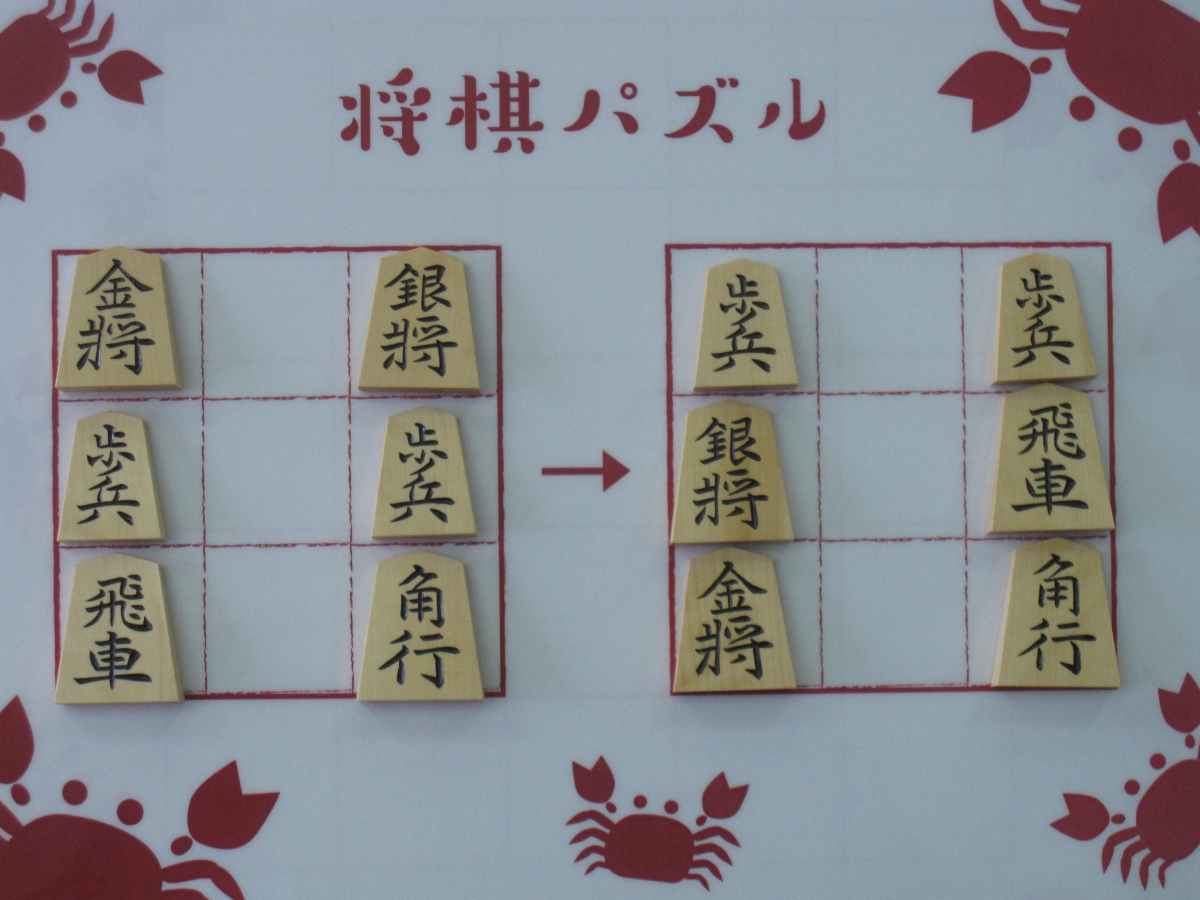 将棋パズル
金将
銀将
歩兵
歩兵
飛車
角行
歩兵
歩兵
銀将
飛車
金将
角行